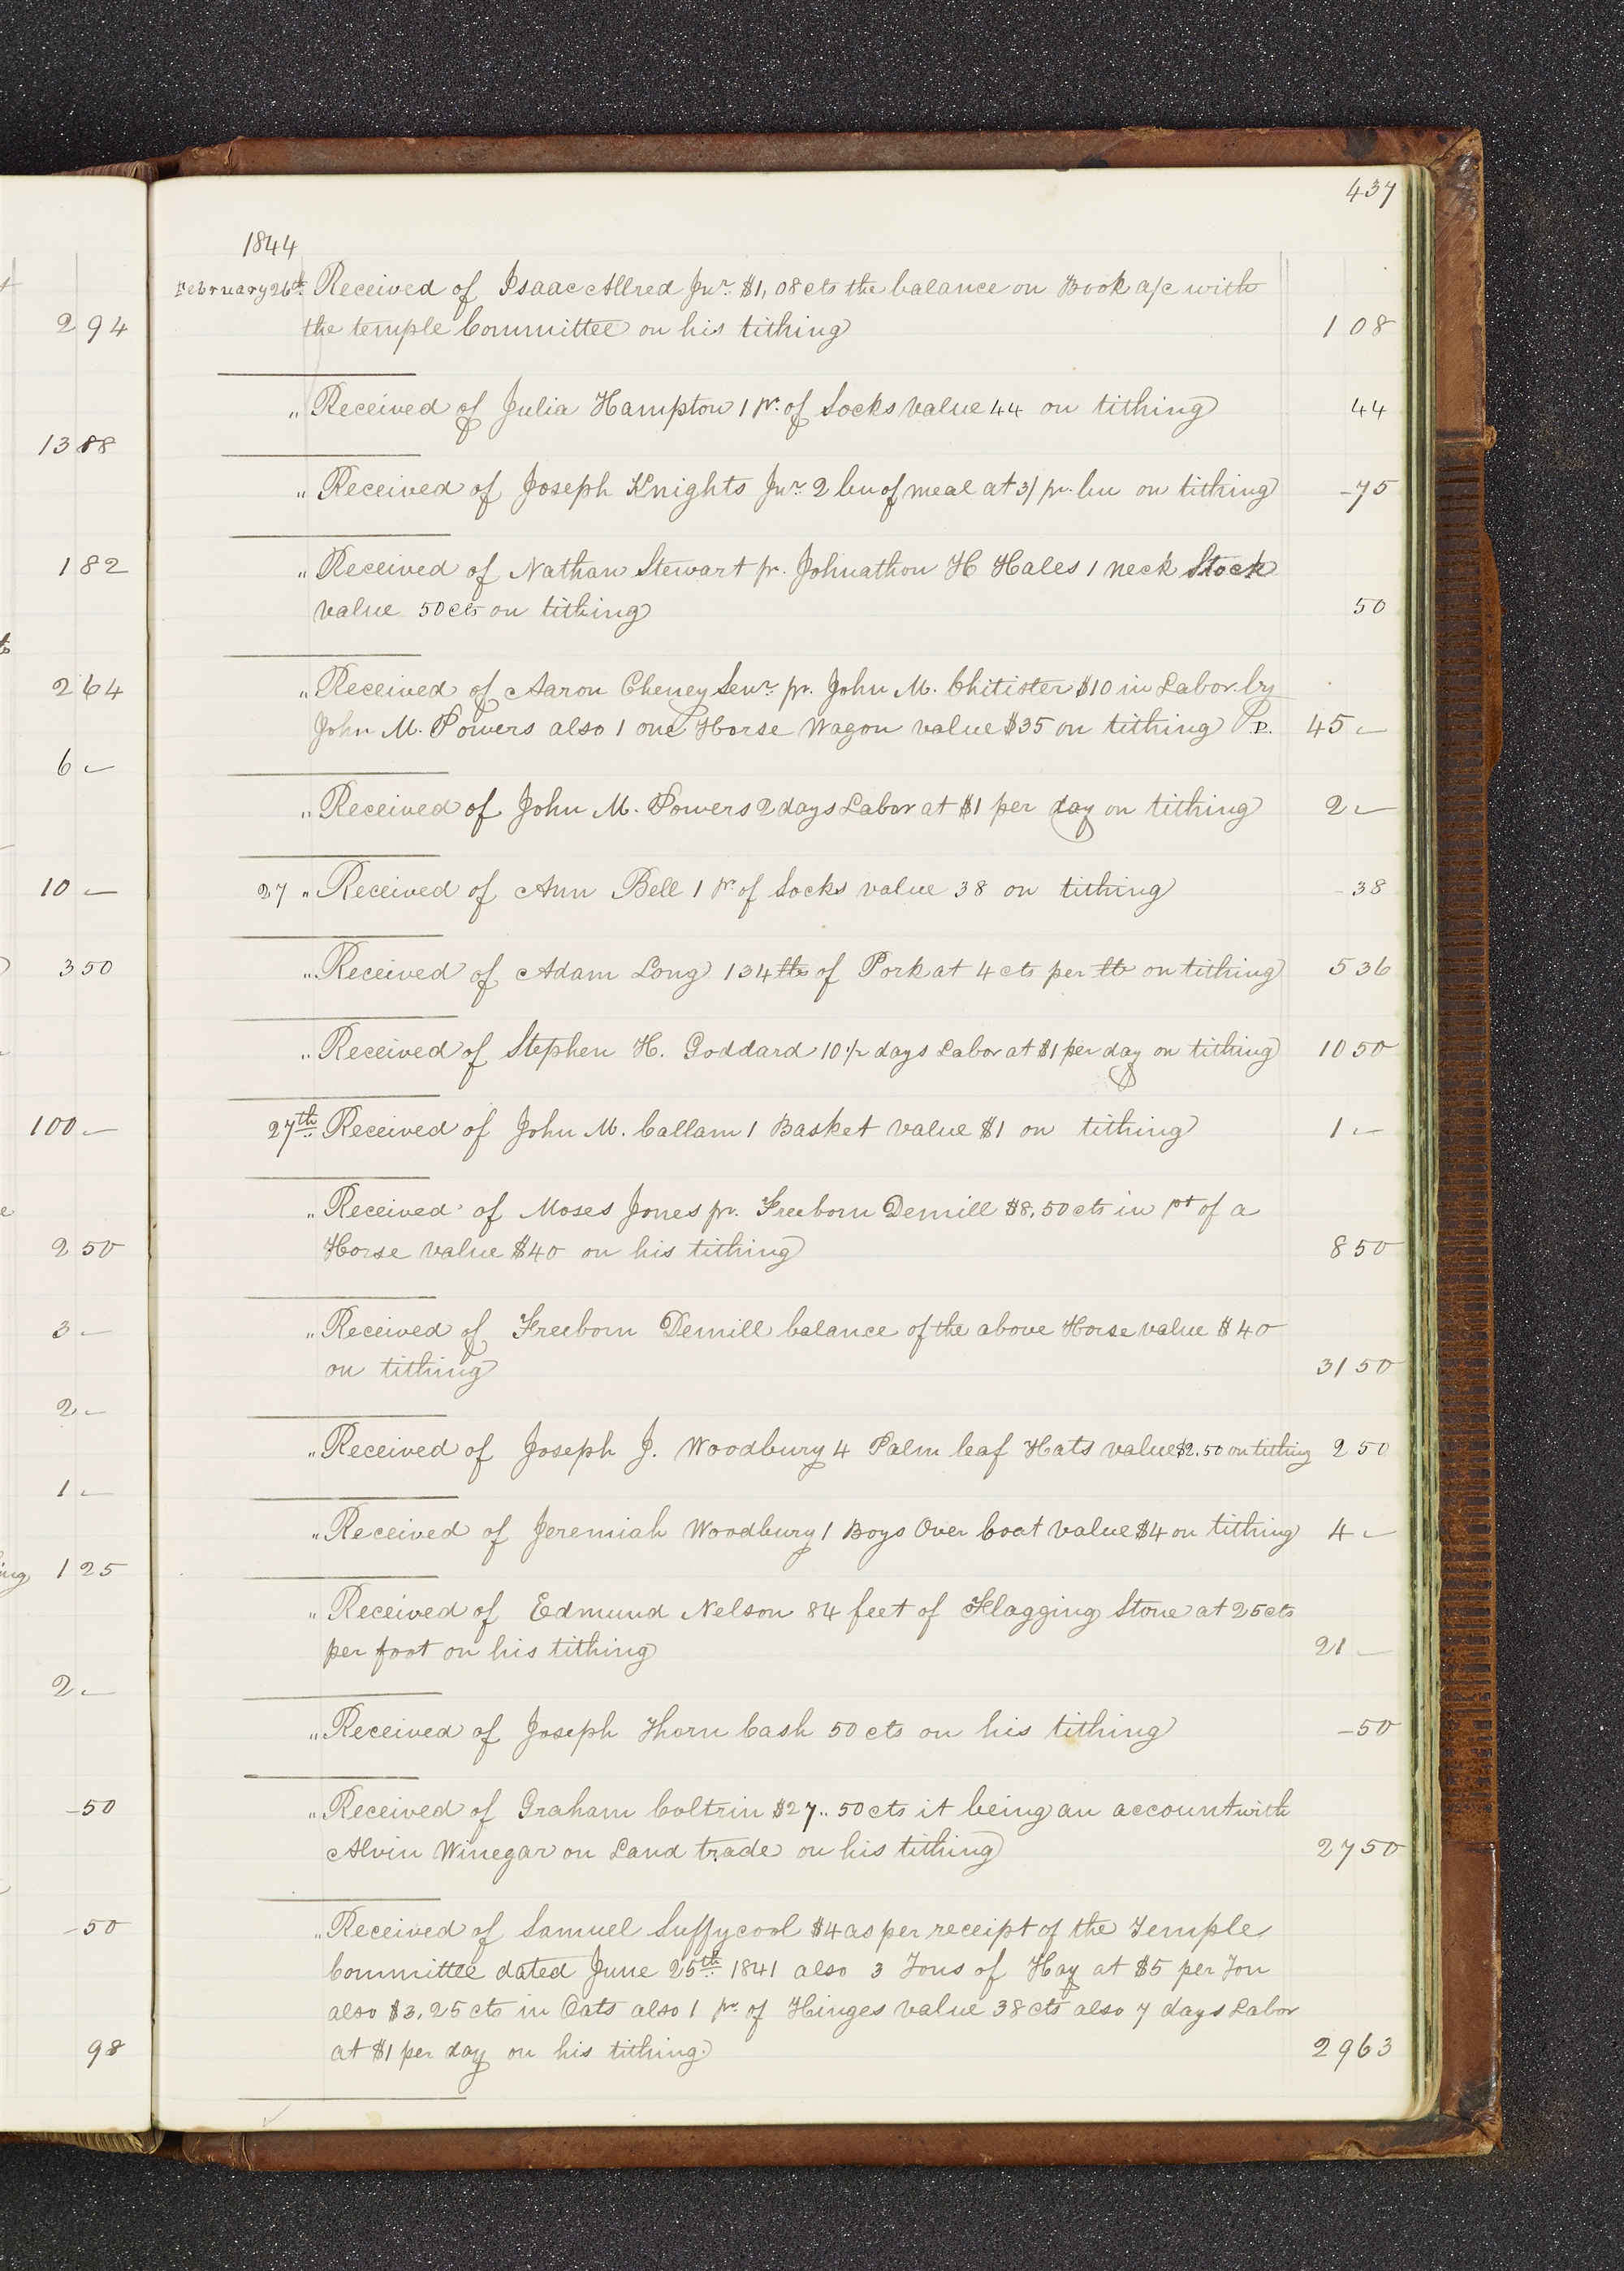 294
1388
182
264
6 –
10 –
350
100 –
250
3 –
2 –
1 –
ing 125
2 –
–50
–50
98
437
1844
February 26th Received of Isaac Allred Jnr. $1,08 cts the balance on Book a/c with
the temple Committee on his tithing 1 08
" Received of Julia Hampton 1 pr. of Socks value 44 on tithing 44
" Received of Joseph Knights Jnr. 2 bu of meal at 3/ pr. bu on tithing –75
" Received of Nathan Stewart pr. Johnathon H Hales 1 neck Stock
value 50 cts on tithing 50
" Received of Aaron Cheney Senr. pr. John M. Chitister $10 in Labor by
John M. Powers also 1 one Horse Wagon value $35 on tithing P.P. 45 –
" Received of John M. Powers 2 days Labor at $1 per day on tithing 2 –
27 " Received of Ann Bell 1 pr of Socks value 38 on tithing – 38
" Received of Adam Long 134 lbs of Pork at 4 cts per lb on tithing 5 36
" Received of Stephen H. Goddard 10 1/2 days Labor at $1 per day on tithing 10 50
27th Received of John M. Callam 1 Basket value $1 on tithing 1 –
" Received of Moses Jones pr. Freeborn Demill $8,50 cts in pt of a
Horse value $40 on his tithing 8 50
" Received of Freeborn Demill balance of the above Horse value $40
on tithing 31 50
" Received of Joseph J. Woodbury 4 Palm leaf Hats value $2.50 on tithing 2 50
" Received of Jeremiah Woodbury 1 Boys Over Coat value $4 on tithing 4 –
" Received of Edmund Nelson 84 feet of Flagging Stone at 25 cts
per foot on his tithing 21 –
" Received of Joseph Thorn Cash 50 cts on his tithing –50
" Received of Graham Coltrin $27.. 50 cts it being an account with
Alvin Winegar on Land trade on his tithing 27 50
" Received of Samuel Suffycool $4 as per receipt of the Temple
Committee dated June 25th 1841 also 3 Tons of Hay at $5 per Ton
also $3,25 cts in Oats also 1 pr. of Hinges value 38 cts also 7 days Labor
at $1 per day on his tithing. 29 63